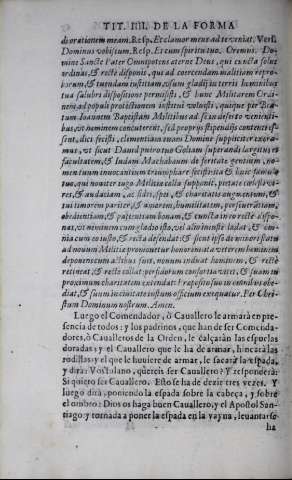 TIT. IIII. DE LA FORMA
di orationem meam. Resp. Et clamor meus ad te veniat. Vers.
Dominus vobiscum. Resp. Et cum spiritu tuo. Oremus. Do-
mine Sancte Pater Omnipotens æterne Deus, qui cuncta solus
ordinas, & recte disponis, qui ad coercendam malitiam repro-
borum, & tuendam iustitiam, vsum gladij in terris hominibus
tua salubri dispositione permisisti, & hunc Militarem Ordi-
nem ad populi protectionem institui voluisti, quique per Bea-
tum Ioannem Baptistam Militibus ad se in deserto venienti-
bus, vt neminem concuterent, sed proprijs stipendijs contenti es-
sent, dici fecisti, clementiam tuam Domine suppliciter exora-
mus, vt sicut Dauid puero tuo Goliam superandi largitus es
facultatem, & Iudam Machabæum de feritate gentium, no-
men tuum inuocantium triumphare fecisti: ita & huic famulo
tuo, qui nouiter iugo Militiæ colla supponit, pietate cœlesti vi-
res, & audaciam, ac fidei, spei, & charitatis augmentum, &
tui timorem pariter, & amorem, humilitatem, perseuerantiam,
obedientiam, & patientiam bonam, & cuncta in eo recte dispo-
nas, vt neminem cum gladio isto, vel alio iniuste lædat, & om-
nia cum eo iusta, & recta defendat: & sicut ipse de minori statu
ad nouum Militiæ prouehitur honorem: ita veterem hominem
deponens cum actibus suis, nouum induat hominem, & recte
retineat, & recte collat: perfidorum consortia vitet, & suam in
proximum charitatem extendat: Præposito suo in omnibus obe-
diat, & suum in cunctis iuste officium exequatur. Per Chri-
stum Dominum nostrum. Amen.
Luego el Comendador, ò Cauallero le armarà en pre-
sencia de todos: y los padrinos, que han de ser Comenda-
dores, ò Caualleros de la Orden, le calçaràn las espuelas
doradas: y el Cauallero que le ha de armar, hincarà las
rodillas: y el que le huuiere de armar, le sacarà la espada,
y dirà: Vos fulano, quereis ser Cauallero? Y responderà:
Si quiero ser Cauallero. Esto se ha de dezir tres vezes. Y
luego dirà, poniendo la espada sobre la cabeça, y sobre
el ombro: Dios os haga buen Cauallero, y el Apostol San-
tiago: y tornada a poner la espada en la vayna, leuantarse
ha